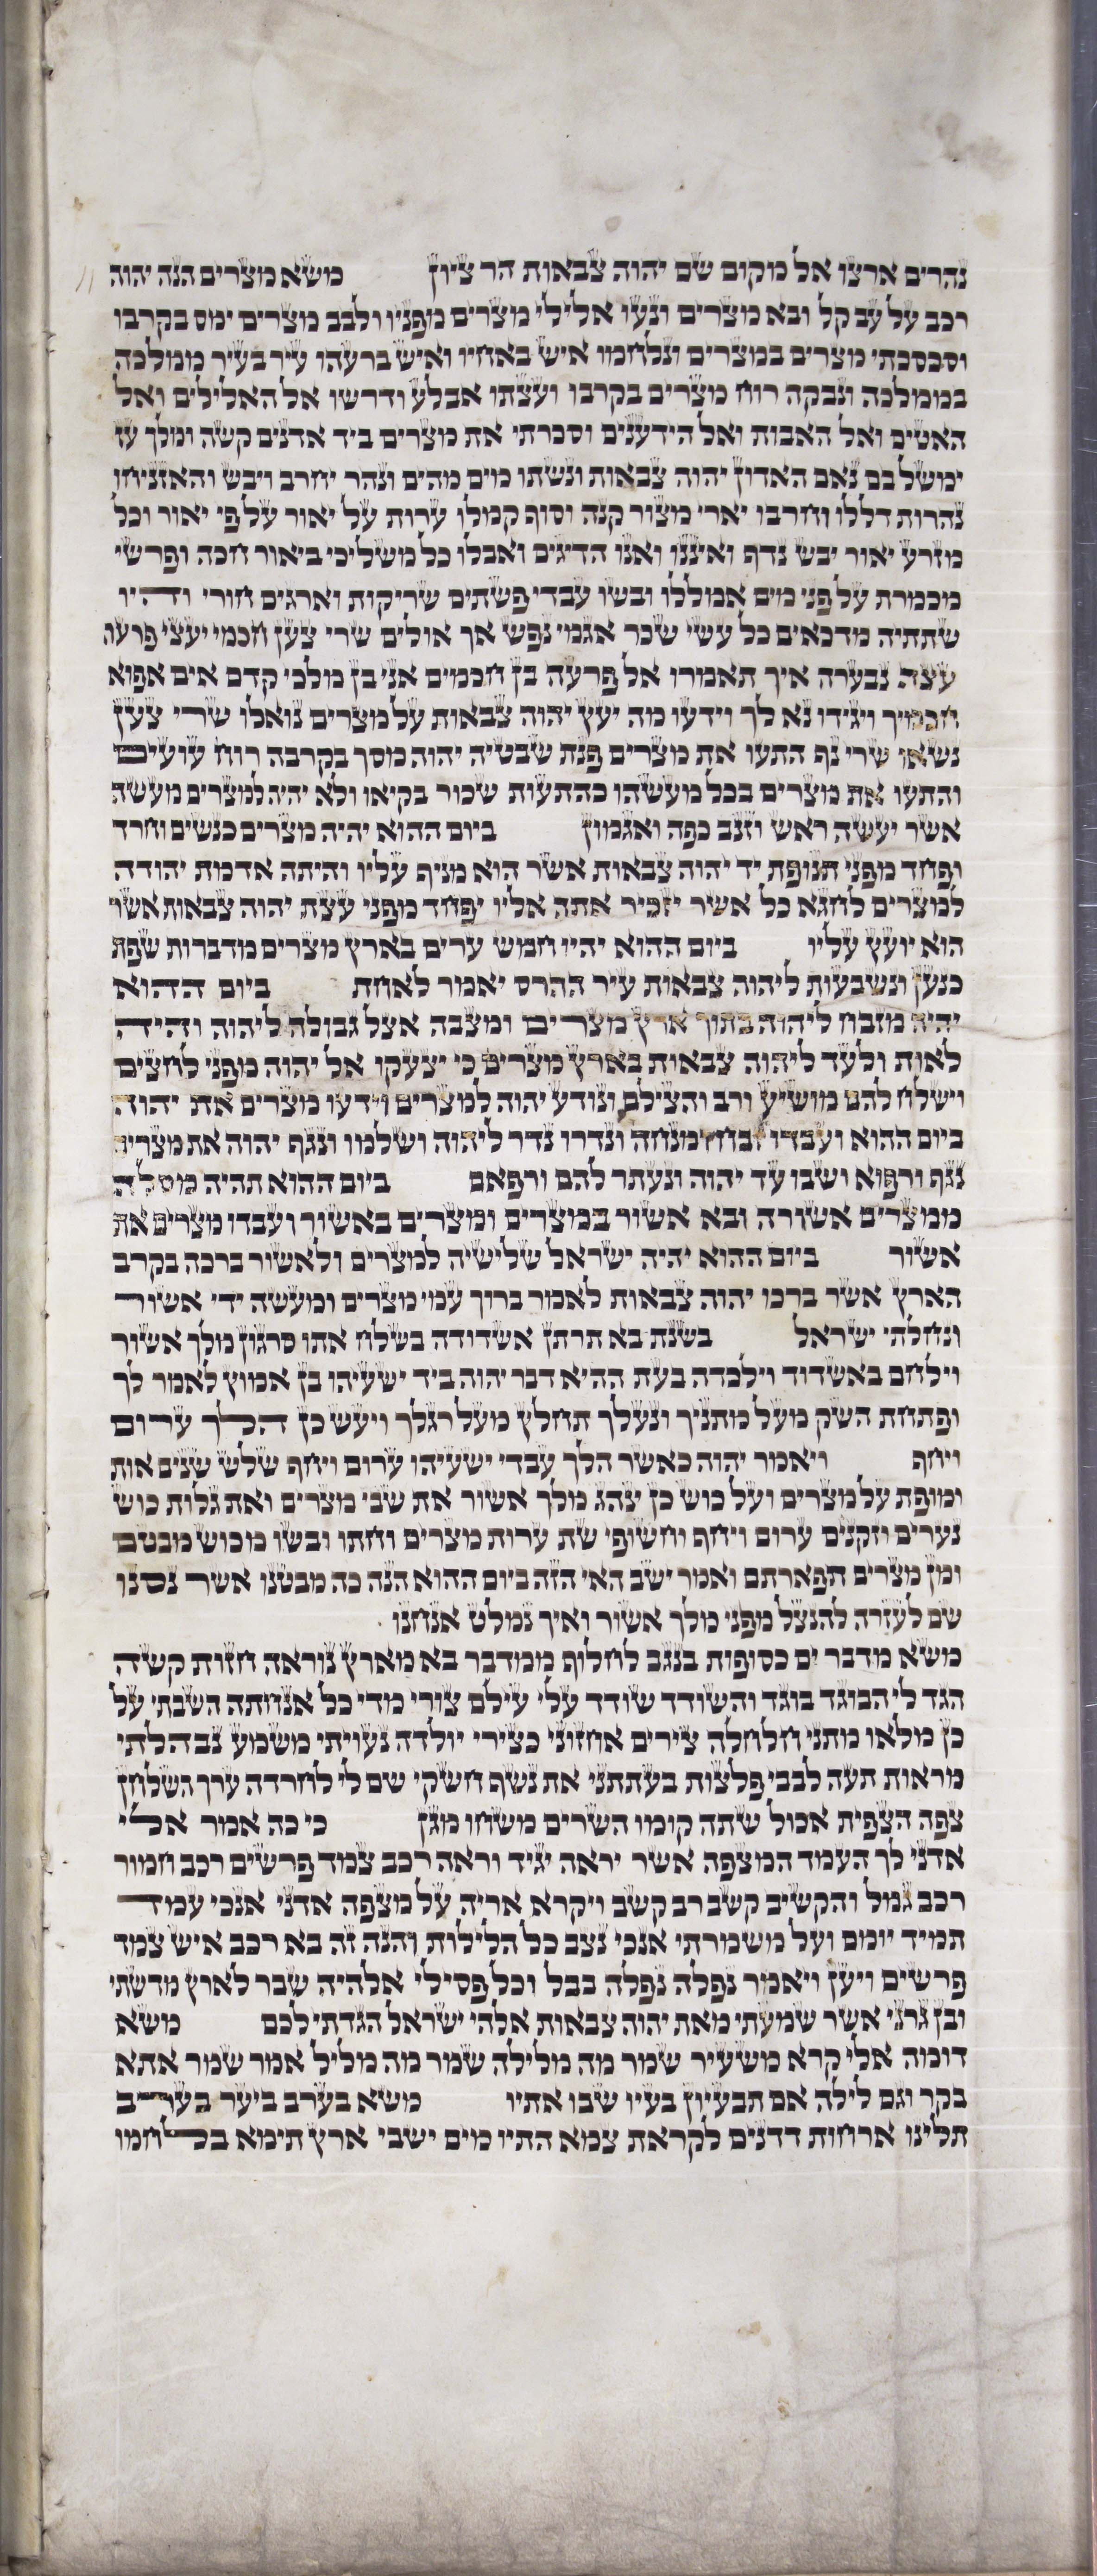 נהרים ארצו אל מקום שם יהוה צבאות הר ציון משא מצרים הנה יהוה
רכב על עב קל ובא מצרים ונעו אלילי מצרים מפניו ולבב מצרים ימס בקרבו
וסכסכתי מצרים במצרים ונלחמו איש באחיו ואיש ברעהו עיר בעיר ממלכה
בממלכה ונבקה רוח מצרים בקרבו ועצתו אבלע ודרשו אל האלילים ואל
האטים ואל האבות ואל הידענים וסכרתי את מצרים ביד אדנים קשה ומלך עז
ימושל בם נאם האדון יהוה צבאות ונשתו מים מהים ונהר יחרב ויבש והאזניחו
נהרות דללו וחרבו יארי מצור קנה וסוף קמלו ערות על יאור על פי יאור וכל
מזרע יאור יבש נדף ואיננו ואנו הדיגים ואבלו כל משליכי ביאור חכה ופרשי
מכמרת על פני מים אמללו ובשו עבדי פשתים שריקות וארגים חורי והיו
שתתיה מדכאים כל עשי שכר אגמי נפש אך אולים שרי צען חכמי יעצי פרעה
עצה נבערה איך תאמרו אל פרעה בן חכמים אני בן מלכי קדם אים אפוא
חכמיך ויגידו נא לך וידעו מה יעץ יהוה צבאות על מצרים נואלו שרי צען
נשאו שרי נף התעו את מצרים פנת שבטיה יהוה מסך בקרבה רוח עועים
והתעו את מצרים בכל מעשהו כהתעות שכור בקיאו ולא יהיה למצרים מעשה
אשר יעשה ראש וזנב כפה ואגמון ביום ההוא יהיה מצרים כנשים וחרד
ופחד מפני תנופת יד יהוה צבאות אשר הוא מניף עליו והיתה אדמת יהודה
למצרים לחגא כל אשר יזכיר אתה אליו יפחד מפני עצת יהוה צבאות אשר
הוא יועץ עליו ביום ההוא יהיו חמש ערים בארץ מצרים מדברות שפת
כנען ונשבעות ליהוה צבאות עיר ההרס יאמר לאחת ביום ההוא
יהיה מזבח ליהוה בתוך ארץ מצרים ומצבה אצל גבולה ליהוה והיה
לאות ולעד ליהוה צבאות בארץ מצרים כי יצעקו אל יהוה מפני לחצים
וישלח להם מושיע ורב והצילם ונודע יהוה למצרים וידעו מצרים את יהוה
ביום ההוא ועבדו זבח ומנחה ונדרו נדר ליהוה ושלמו ונגף יהוה את מצרים
נגף ורפוא ושבו עד יהוה ונעתר להם ורפאם ביום ההוא תהיה מסלה
ממצרים אשורה ובא אשור במצרים ומצרים באשור ועבדו מצרים את
אשור ביום ההוא יהיה ישראל שלישיה למצרים ולאשור ברכה בקרב
הארץ אשר ברכו יהוה צבאות לאמר ברוך עמי מצרים ומעשה ידי אשור
ונחלתי ישראל בשנת בא תרתן אשדודה בשלח אתו סרגון מלך אשור
וילחם באשדוד וילכדה בעת ההיא דבר יהוה ביד ישעיהו בן אמוץ לאמר לך
ופתחת השק מעל מתניך ונעלך תחלץ מעל רגלך ויעש כן הלך ערום
ויחף ויאמר יהוה כאשר הלך עבדי ישעיהו ערום ויחף שלש שנים אות
ומופת על מצרים ועל כוש כן ינהג מלך אשור את שבי מצרים ואת גלות כוש
נערים וזקנים ערום ויחף וחשופי שת ערות מצרים וחתו ובשו מכוש מבטם
ומן מצרים תפארתם ואמר ישב האי הזה ביום ההוא הנה כה מבטנו אשר נסנו
שם לעזרה להנצל מפני מלך אשור ואיך נמלט אנחנו
משא מדבר ים כסופות בנגב לחלוף ממדבר בא מארץ נוראה חזות קשה
הגד לי הבוגד בוגד והשודד שודד עלי עילם צורי מדי כל אנחתה השבתי על
כן מלאו מתני חלחלה צירים אחזוני כצירי יולדה נעויתי משמע נבהלתי
מראות תעה לבבי פלצות בעתתני את נשף חשקי שם לי לחרדה ערך השלחן
צפה הצפית אכול שתה קומו השרים משחו מגן כי כה אמר אלי
אדני לך העמד המצפה אשר יראה יגיד וראה רכב צמד פרשים רכב חמור
רכב גמל והקשיב קשב רב קשב ויקרא אריה על מצפה אדני אנכי עמד
תמיד יומם ועל משמרתי אנכי נצב כל הלילות והנה זה בא רכב איש צמד
פרשים ויען ויאמר נפלה נפלה בבל וכל פסילי אלהיה שבר לארץ מדשתי
ובן גרני אשר שמעתי מאת יהוה צבאות אלהי ישראל הגדתי לכם משא
דומה אלי קרא משעיר שמר מה מלילה שמר מה מליל אמר שמר אתא
בקר וגם לילה אם תבעיון בעיו שבו אתיו משא בערב ביער בערב
תלינו ארחות דדנים לקראת צמא התיו מים ישבי ארץ תימא בלחמו